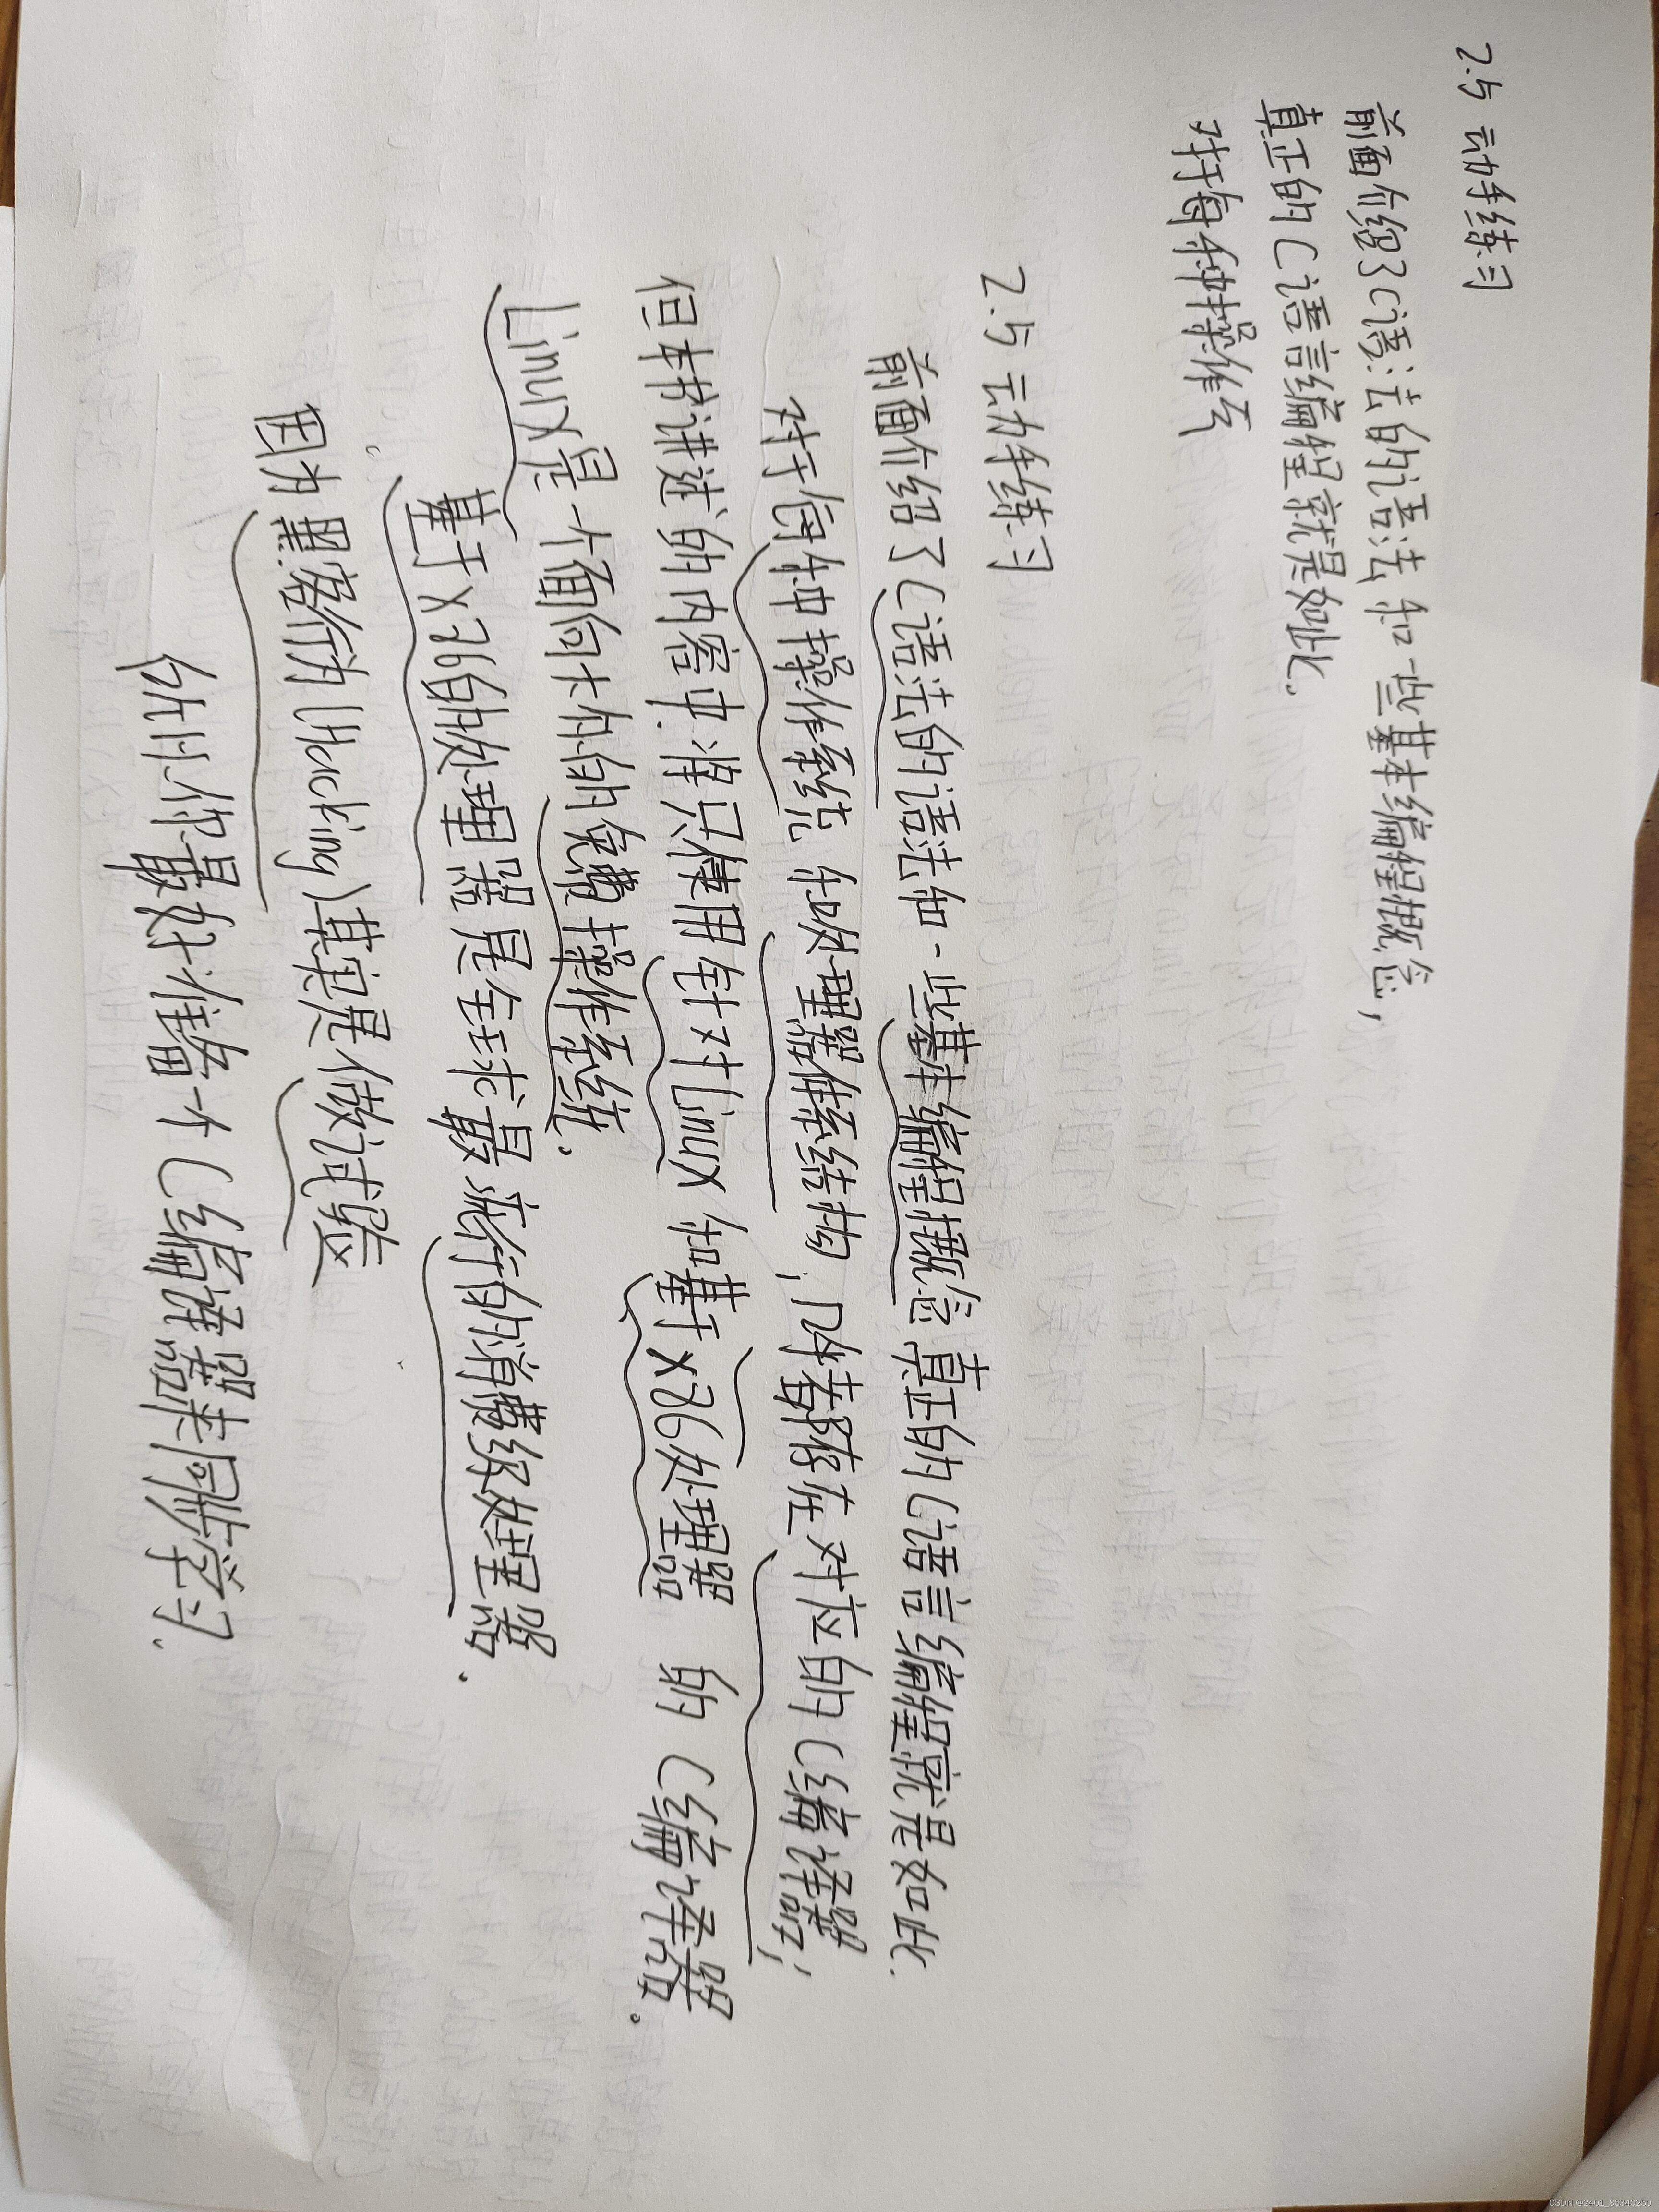 2.5 动手练习
前面介绍了C语法的语法和一些基本编程概念,
真正的C语言编程就是如此.
对于每种操作系
2.5 动手练习
前面介绍了C语法的语法和一些基本编程概念 真正的C语言编程就是如此.
对于每种操作系统 和处理器体系结构, 几体都存在对应的C编译器,
但本书讲述的内容中.将只使用针对Linux 和基于x86处理器 的C编译器.
Linux是一个面向大众的免费操作系统.
基于x86的处理器是全球最流行的消费级处理器.
因为黑客行为(Hacking)其实是做试验
所以你最好准备一个C编译器来同步学习.
CSDN @2401_86340250